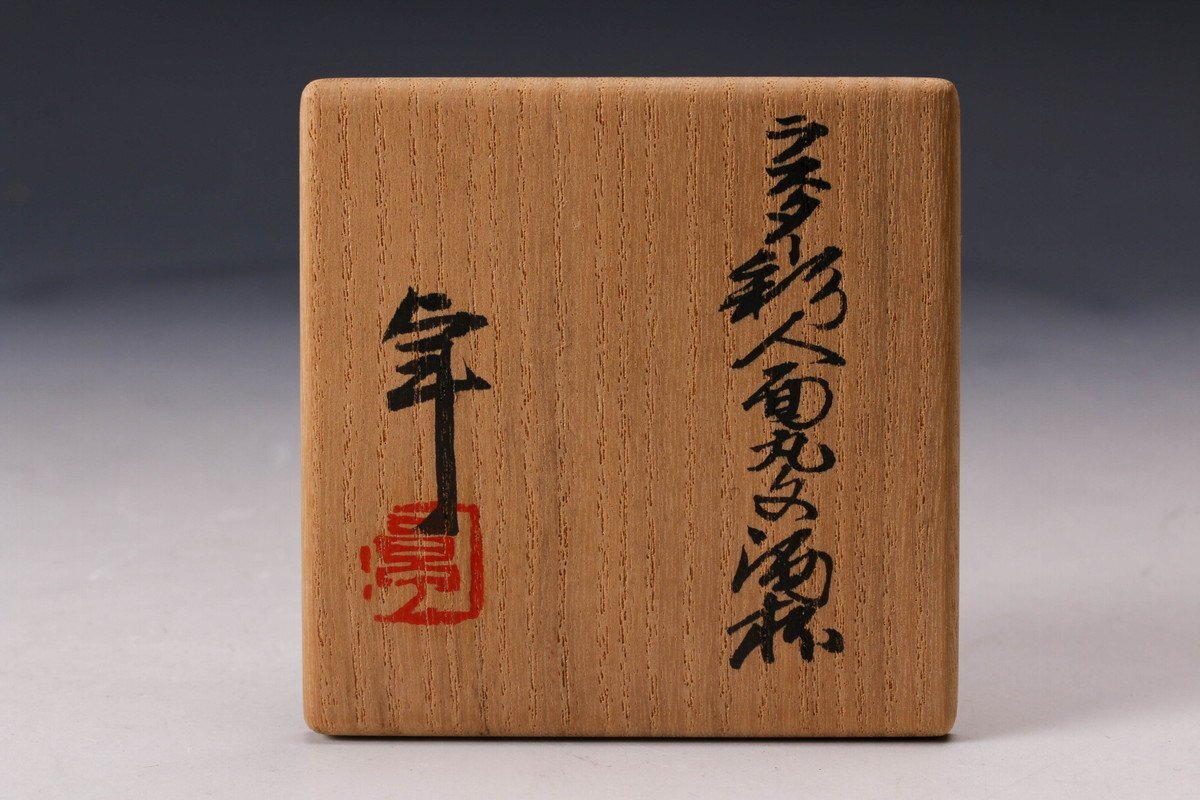 ラスター彩人面丸文酒杯